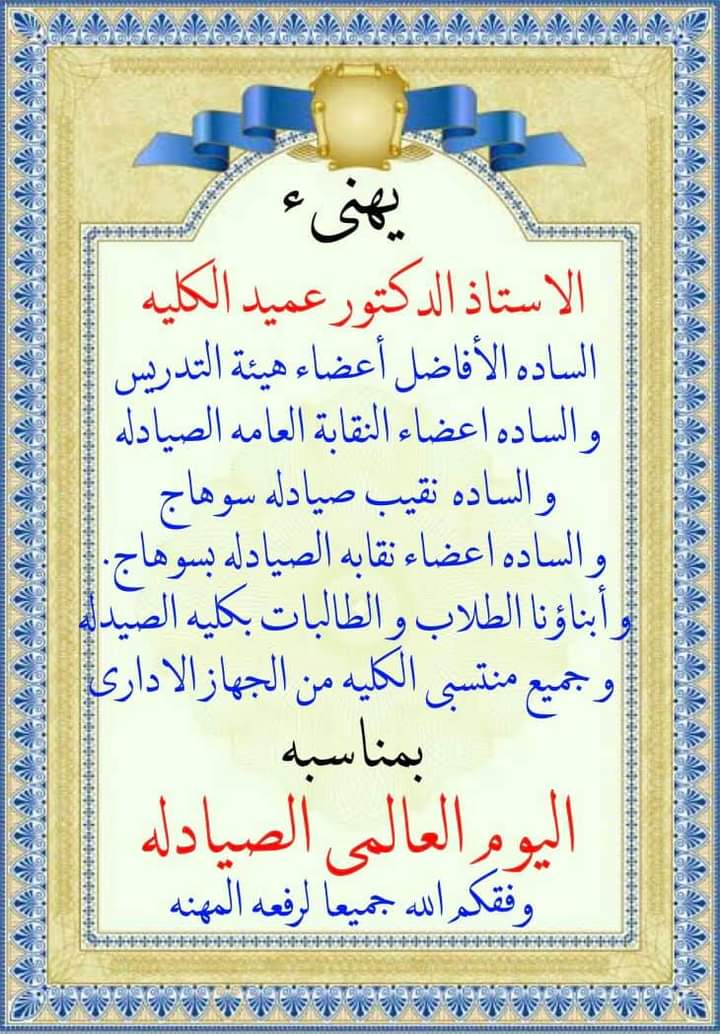 يهنىء
الاستاذ الدكتور عميد الكليه
الساده الأفاضل أعضاء هيئة التدريس
و الساده اعضاء النقابة العامه الصيادله
و الساده نقيب صيادله سوهاج
و الساده اعضاء نقابه الصيادله بسوهاج.
و أبناؤنا الطلاب و الطالبات بكليه الصيدله
و جميع منتسبى الكليه من الجهاز الادارى
بمناسبه
اليوم العالمى الصيادله
وفقكم الله جميعا لرفعه المهنه